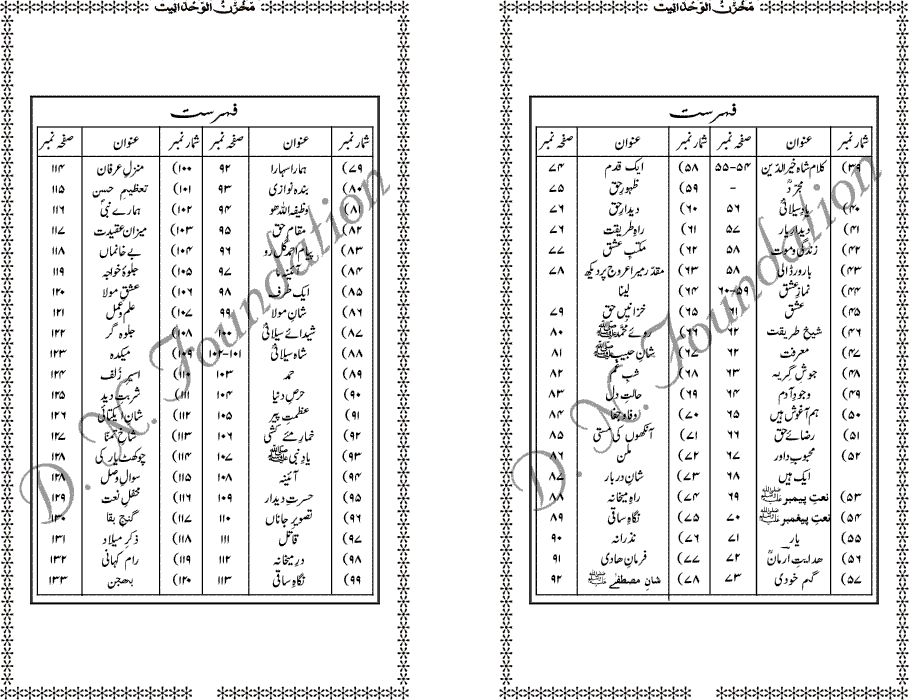 مَخْزَنُ الْوَحْدَانِیت
فہرست
شمار نمبر عنوان صفحہ نمبر
۳۹) کلام شاہ خیرالدّین ۵۴-۵۵
مجرّدؒ -
۴۰) یادِ سیلانیؒ ۵۶
۴۱) دیدارِ یار ۵۷
۴۲) زندگی و موت ۵۸
۴۳) بارور ڈالی ۵۸
۴۴) نمازِ عشق ۵۹-۶۰
۴۵) عشق ۶۱
۴۶) شیخِ طریقت ۶۲
۴۷) معرفت ۶۲
۴۸) جوشِ گریہ ۶۳
۴۹) وجودِ آدم ۶۴
۵۰) ہم آغوش ہیں ۶۵
۵۱) رضائے حق ۶۶
۵۲) محبوبِ داور ۶۷
ایک ہیں ۶۸
۵۳) نعتِ پیمبر ﷺ ۶۹
۵۴) نعتِ پیغمبر ﷺ ۷۰
۵۵) یار ۷۱
۵۶) ھدایتِ ارمانؒ ۷۲
۵۷) گم خودی ۷۳
شمار نمبر عنوان صفحہ نمبر
۵۸) ایک قدم ۷۴
۵۹) ظہورِ حق ۷۵
۶۰) دیدارِ حق ۷۶
۶۱) راہِ طریقت ۷۶
۶۲) مکتبِ عشق ۷۷
۶۳) مقدّر میرا عروج پر دیکھ ۷۸
۶۴) لینا
۶۵) خزائینِ حق ۷۹
۶۶) روئے محمد ﷺ ۸۰
۶۷) شانِ حبیب ﷺ ۸۱
۶۸) شبِ غم ۸۲
۶۹) حالتِ دل ۸۳
۷۰) وفا و جفا ۸۴
۷۱) آنکھوں کی مستی ۸۵
۷۲) ملن ۸۶
۷۳) شانِ دربار ۸۷
۷۴) راہِ میخانہ ۸۸
۷۵) نگاہِ ساقی ۸۹
۷۶) نذرانہ ۹۰
۷۷) فرمانِ ھادی ۹۱
۷۸) شانِ مصطفےٰ ﷺ ۹۲
مَخْزَنُ الْوَحْدَانِیت
فہرست
شمار نمبر عنوان صفحہ نمبر
۷۹) ہمارا سہارا ۹۲
۸۰) بندہ نوازی ۹۳
۸۱) وظیفہ اللہ ھو ۹۴
۸۲) مقامِ حق ۹۵
۸۳) پیام احمد گل رو ۹۶
۸۴) آئینہ ۹۷
۸۵) ایک طرف ۹۸
۸۶) شانِ مولا ۹۹
۸۷) شیدائے سیلانیؒ ۱۰۰
۸۸) شاہ سیلانیؒ ۱۰۱-۱۰۲
۸۹) حمد ۱۰۳
۹۰) حرصِ دنیا ۱۰۴
۹۱) عظمتِ پیر ۱۰۵
۹۲) خمارِ مئے کشی ۱۰۶
۹۳) یادِ نبی ﷺ ۱۰۷
۹۴) آئینہ ۱۰۸
۹۵) حسرتِ دیدار ۱۰۹
۹۶) تصویرِ جاناں ۱۱۰
۹۷) قاتل ۱۱۱
۹۸) درِ میخانہ ۱۱۲
۹۹) نگاہِ ساقی ۱۱۳
شمار نمبر عنوان صفحہ نمبر
۱۰۰) منزلِ عرفان ۱۱۴
۱۰۱) تعظیمِ حسن ۱۱۵
۱۰۲) ہمارے نبیؐ ۱۱۶
۱۰۳) میزانِ عقیدت ۱۱۷
۱۰۴) بے خانماں ۱۱۸
۱۰۵) جلوۂ خواجہ ۱۱۹
۱۰۶) عشقِ مولا ۱۲۰
۱۰۷) علم و عمل ۱۲۱
۱۰۸) جلوہ گر ۱۲۲
۱۰۹) میکدہ ۱۲۳
۱۱۰) اسیرِ زُلف ۱۲۴
۱۱۱) شربتِ دید ۱۲۵
۱۱۲) شانِ یکتائی ۱۲۶
۱۱۳) شاخِ تمنّا ۱۲۷
۱۱۴) چوکھٹ یار کی ۱۲۸
۱۱۵) سوالِ وصل ۱۲۸
۱۱۶) محفلِ نعت ۱۲۹
۱۱۷) گنجِ بقا ۱۳۰
۱۱۸) ذکرِ میلاد ۱۳۱
۱۱۹) رام کہانی ۱۳۲
۱۲۰) بھجن ۱۳۳
D. N. Foundation
D. N. Foundation